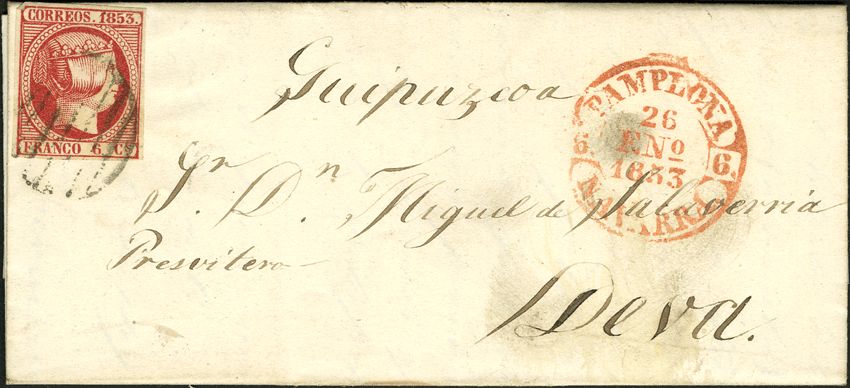 CORREOS. 1853.
FRANCO 6. CS
PAMPLONA
26
ENº
1853
6. 6.
NAVARRA
Guipuzcoa
Sr. Dn. Miguel de Salaverria
Presvitero
Deva.